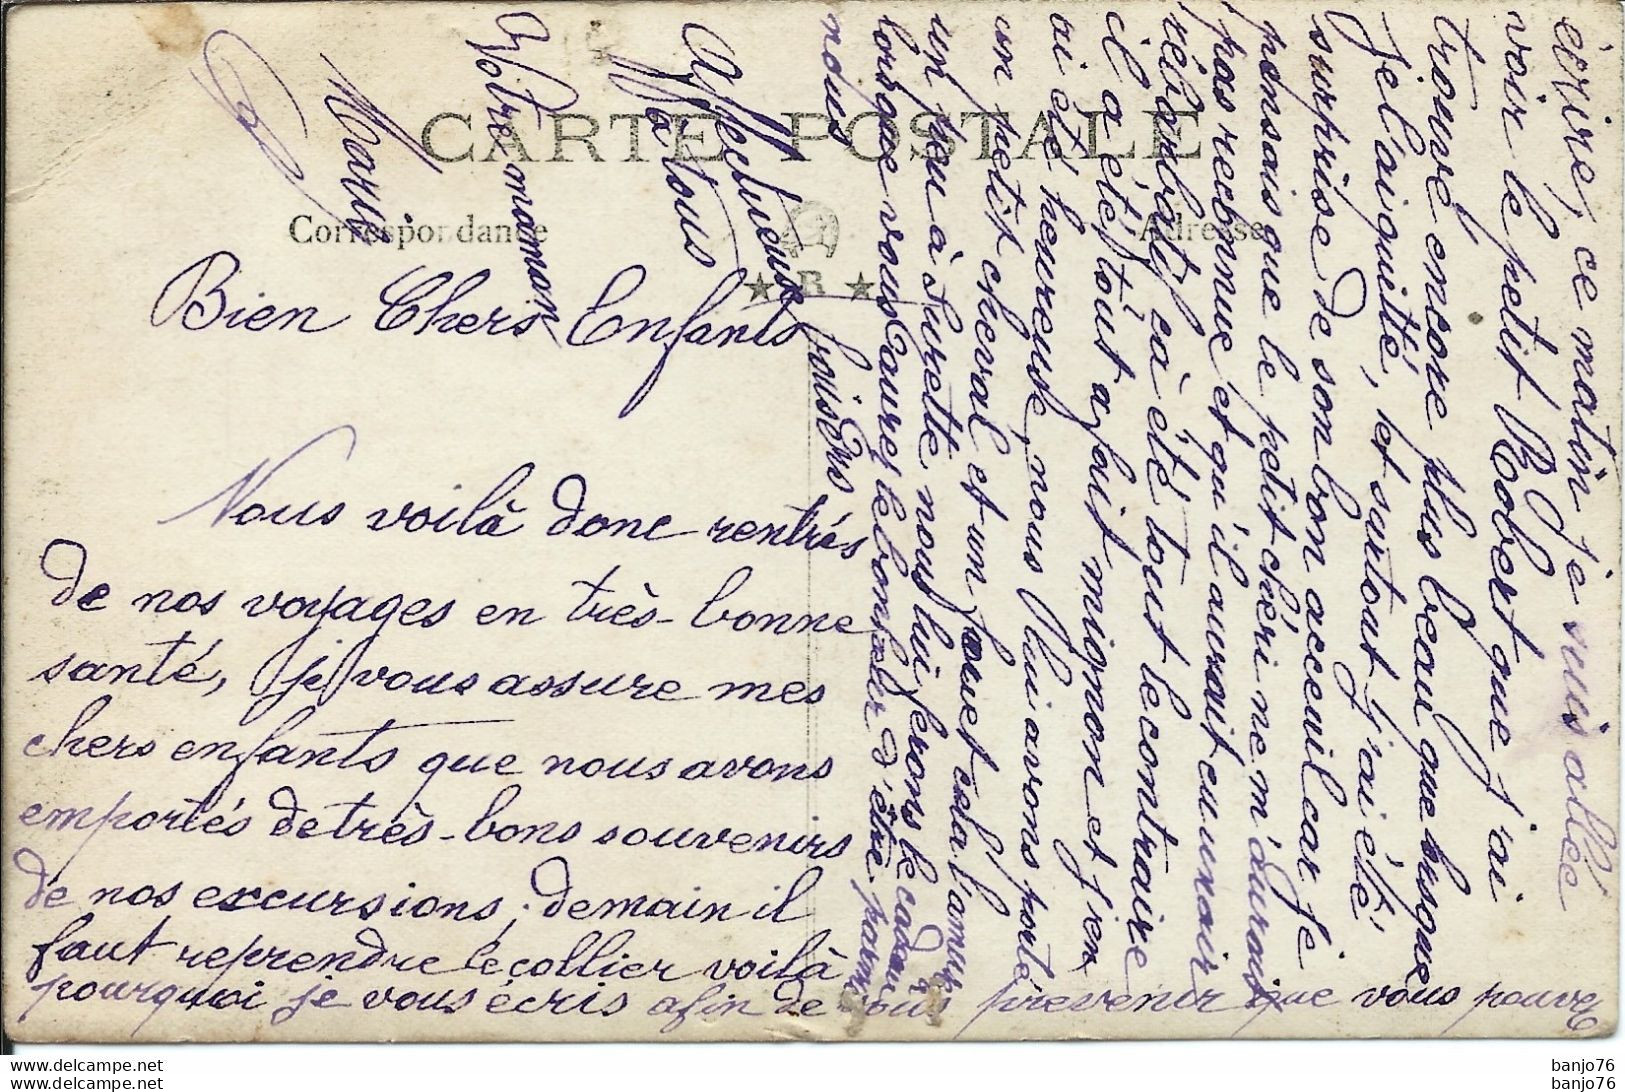 CARTE POSTALE
Correspondance
Adresse
R
Bien Chers Enfants
Nous voilà donc rentrés
de nos voyages en très-bonne
santé, je vous assure mes
chers enfants que nous avons
emportés de très-bons souvenirs
de nos excursions, demain il
faut reprendre le collier voilà
pourquoi je vous écris afin de vous prévenir que vous pouvez
écrire, ce matin je suis allée
voir le petit Robert que j'ai
trouvé encore plus beau que lorsque
je l'ai quitté, et surtout j'ai été
surprise de son bon acceuil car je
pensais que le petit chéri ne m'aurait
pas reconnue et qu'il aurait eu un air
rébarbatif çà été tout le contraire
il a été tout a fait mignon et j'en
ai été heureuse, nous lui avons porté
un petit cheval et un fouet cela l'amuse
un peu à Surette nous lui ferons le cadeau
lorsque vous aurez le bonheur d'être parmi
nous
bons baisers
Affectueux
à tous
Votre maman
Marie
banjo76
banjo76
banjo76
banjo76